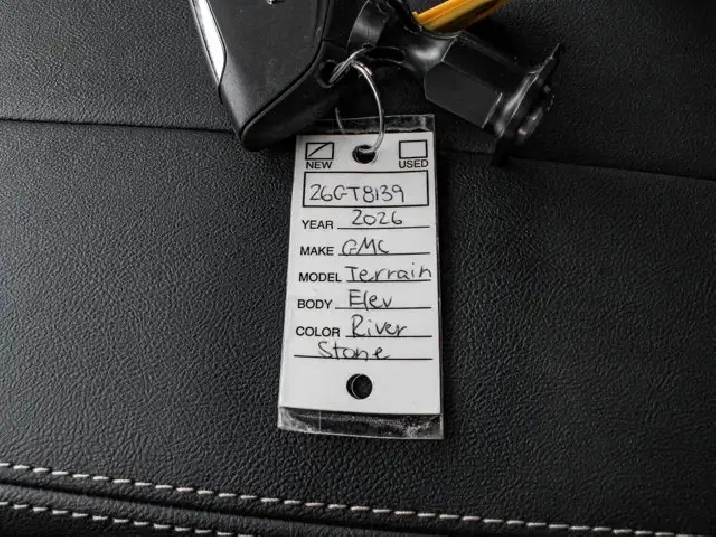 NEW USED
26GT8139
YEAR 2026
MAKE GMC
MODEL Terrain
BODY Elev
COLOR River
Stone